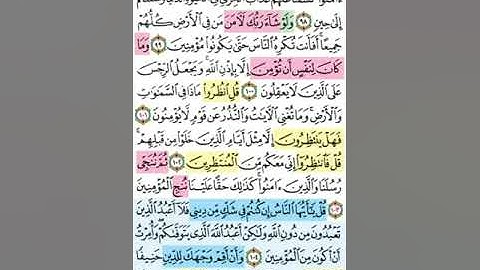 ءَامَنُوا۟ كَشَفْنَا عَنْهُمْ عَذَابَ ٱلْخِزْىِ فِى ٱلْحَيَوٰةِ ٱلدُّنْيَا وَمَتَّعْنَٰهُمْ
إِلَىٰ حِينٍ ٩٨ وَلَوْ شَآءَ رَبُّكَ لَءَامَنَ مَن فِى ٱلْأَرْضِ كُلُّهُمْ
جَمِيعًا ۚ أَفَأَنتَ تُكْرِهُ ٱلنَّاسَ حَتَّىٰ يَكُونُوا۟ مُؤْمِنِينَ ٩٩ وَمَا
كَانَ لِنَفْسٍ أَن تُؤْمِنَ إِلَّا بِإِذْنِ ٱللَّهِ ۚ وَيَجْعَلُ ٱلرِّجْسَ
عَلَى ٱلَّذِينَ لَا يَعْقِلُونَ ١٠٠ قُلِ ٱنظُرُوا۟ مَاذَا فِى ٱلسَّمَٰوَٰتِ
وَٱلْأَرْضِ ۚ وَمَا تُغْنِى ٱلْءَايَٰتُ وَٱلنُّذُرُ عَن قَوْمٍ لَّا يُؤْمِنُونَ ١٠١
فَهَلْ يَنتَظِرُونَ إِلَّا مِثْلَ أَيَّامِ ٱلَّذِينَ خَلَوْا۟ مِن قَبْلِهِمْ ۚ
قُلْ فَٱنتَظِرُوٓا۟ إِنِّى مَعَكُم مِّنَ ٱلْمُنتَظِرِينَ ١٠٢ ثُمَّ نُنَجِّى
رُسُلَنَا وَٱلَّذِينَ ءَامَنُوا۟ ۚ كَذَٰلِكَ حَقًّا عَلَيْنَا نُنجِ ٱلْمُؤْمِنِينَ
١٠٣ قُلْ يَٰٓأَيُّهَا ٱلنَّاسُ إِن كُنتُمْ فِى شَكٍّ مِّن دِينِى فَلَآ أَعْبُدُ ٱلَّذِينَ
تَعْبُدُونَ مِن دُونِ ٱللَّهِ وَلَٰكِنْ أَعْبُدُ ٱللَّهَ ٱلَّذِى يَتَوَفَّىٰكُمْ ۖ وَأُمِرْتُ
أَنْ أَكُونَ مِنَ ٱلْمُؤْمِنِينَ ١٠٤ وَأَنْ أَقِمْ وَجْهَكَ لِلدِّينِ حَنِيفًا